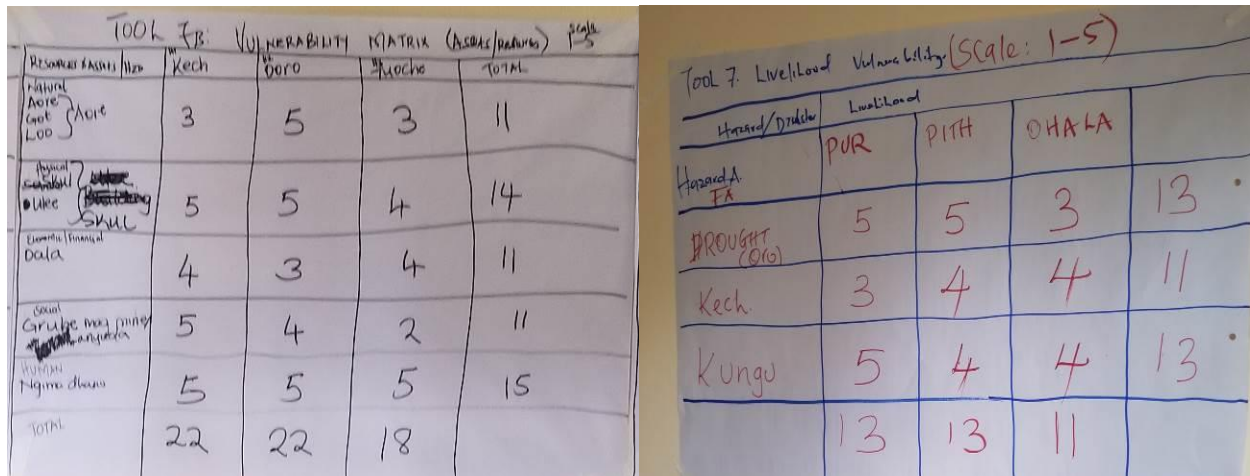 TOOL 7B: VULNERABILITY MATRIX (Assets/ scale 1-5
RESOURCES/ASSETS/ Kech Ooro Muocho TOTAL
Natural
Aore
Got Aore
Loo
3 5 3 11
Physical
Skul
5 5 4 14
Economic/Financial
Dala
4 3 4 11
Social
Grube mag mine
anyuola
5 4 2 11
HUMAN
Ngima dhano
5 5 5 15
TOTAL
22 22 18
TOOL 7. Livelihood Vulnerability (Scale: 1-5)
Hazard/Disaster Livelihood
PUR PITH OHALA
Hazard A.
DROUGHT 5 5 3 13
(Oro)
Kech. 3 4 4 11
Kungu 5 4 4 13
13 13 11